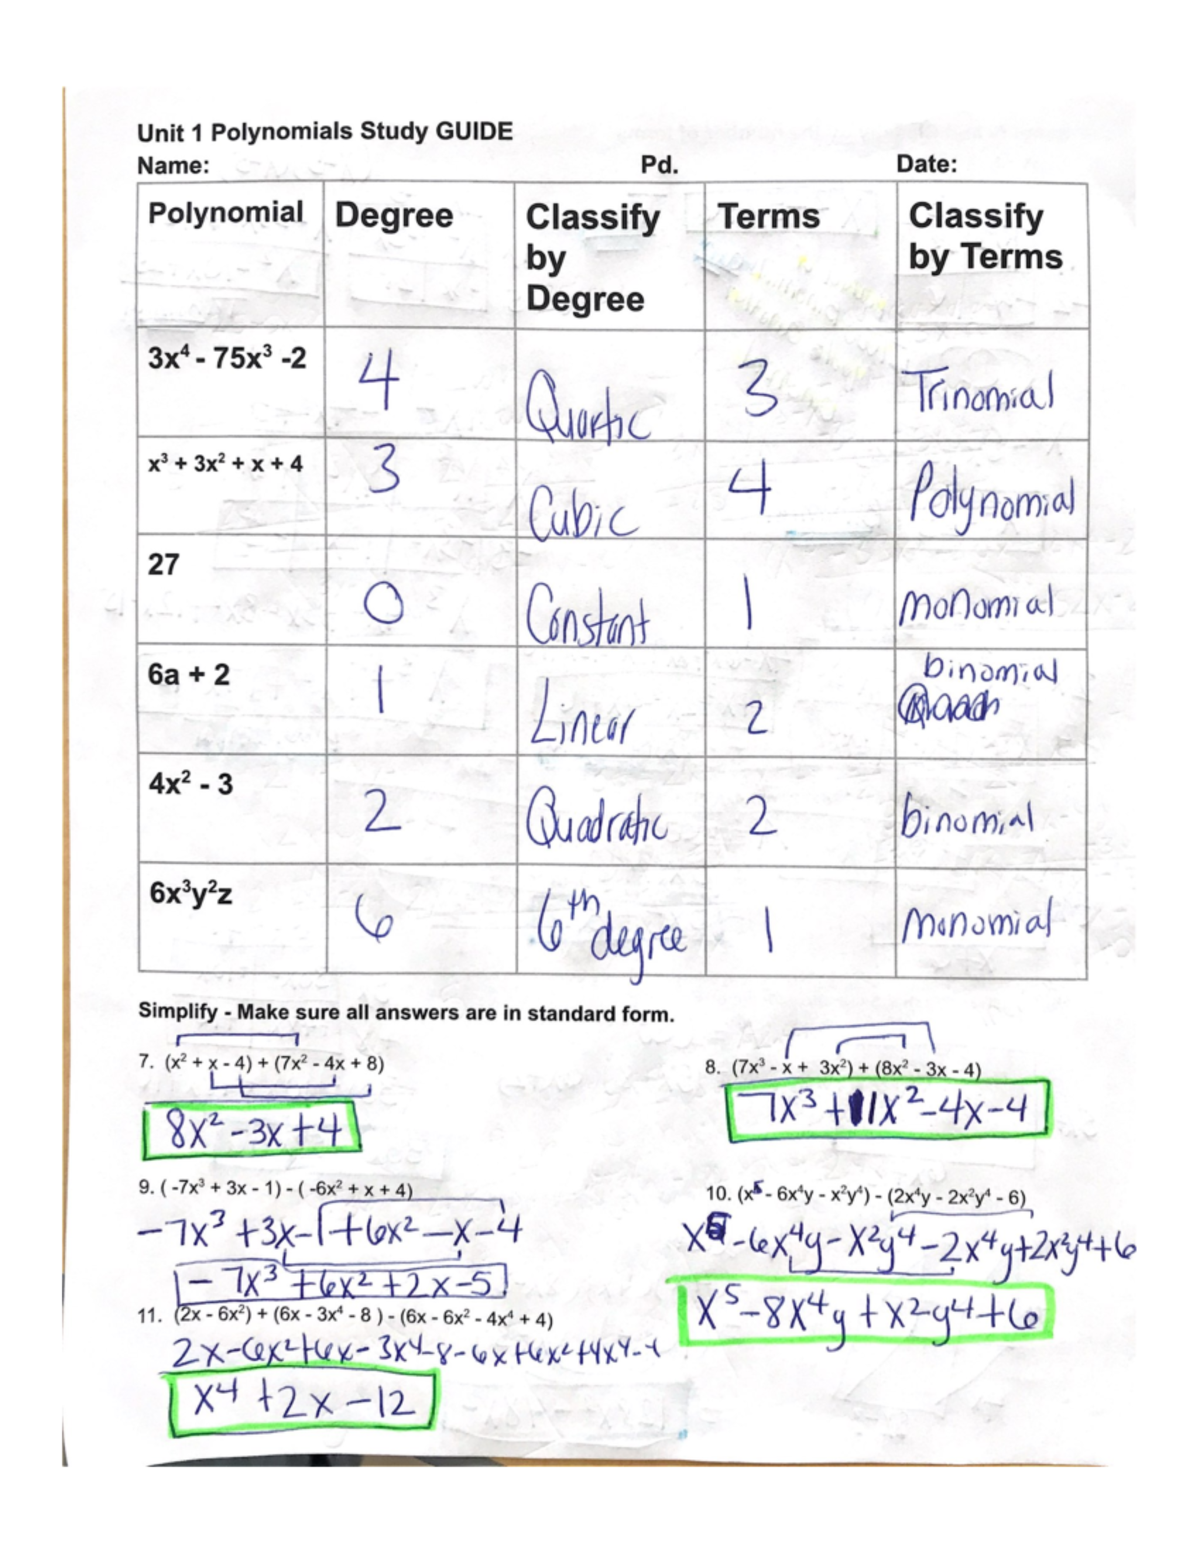 Unit 1 Polynomials Study GUIDE
Name: Pd. Date:
Polynomial Degree Classify by Degree Terms Classify by Terms
3x⁴ - 75x³ -2 4 Quartic 3 Trinomial
x³ + 3x² + x + 4 3 Cubic 4 Polynomial
27 0 Constant 1 monomial
6a + 2 1 Linear 2 binomial
4x² - 3 2 Quadratic 2 binomial
6x³y²z 6 6th degree 1 monomial
Simplify - Make sure all answers are in standard form.
7. (x² + x - 4) + (7x² - 4x + 8)
8x² - 3x + 4
8. (7x³ - x + 3x²) + (8x² - 3x - 4)
7x³ + 11x² - 4x - 4
9. ( -7x³ + 3x - 1) - ( -6x² + x + 4)
-7x³ + 3x - 1 + 6x² - x - 4
- 7x³ + 6x² + 2x - 5
10. (x⁵ - 6x⁴y - x²y⁴) - (2x⁴y - 2x²y⁴ - 6)
x⁵ - 6x⁴y - x²y⁴ - 2x⁴y + 2x²y⁴ + 6
x⁵ - 8x⁴y + x²y⁴ + 6
11. (2x - 6x²) + (6x - 3x⁴ - 8 ) - (6x - 6x² - 4x⁴ + 4)
2x - 6x² + 6x - 3x⁴ - 8 - 6x + 6x² + 4x⁴ - 4
x⁴ + 2x - 12